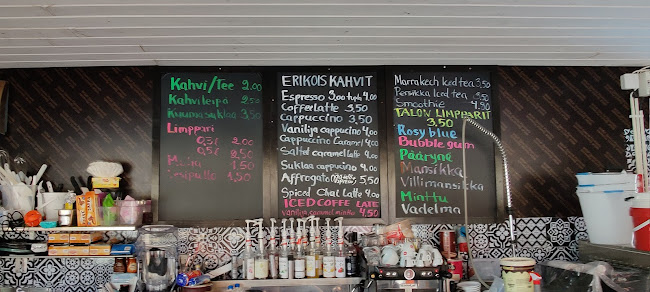 Kahvi/Tee 2.00
Kahvileipä 2.50
Kuumasuklaa 3.50
Limppari
0,5l 2.00
Mehu 1.50
1.50
ERIKOISKAHVIT
Espresso 3.00 tupla 4.00
Coffeelatte 3,50
Cappuccino 3.50
Vanilja cappuccino 4.00
Cappuccino Caramel 4.00
Salted caramel latte 4.00
Suklaa cappuccino 4.00
Affogato 5.50
Spiced Chai Latte 4.00
ICED COFFE LATE
vanilja caramel minttu 4.50
Marrakech Iced tea 3,50
Persikka Iced tea 3.50
Smoothie 4.50
TALON LIMPPARIT
3,50
Rosy blue
Bubble gum
Päärynä
Mansikka
Villimansikka
Minttu
Vadelma